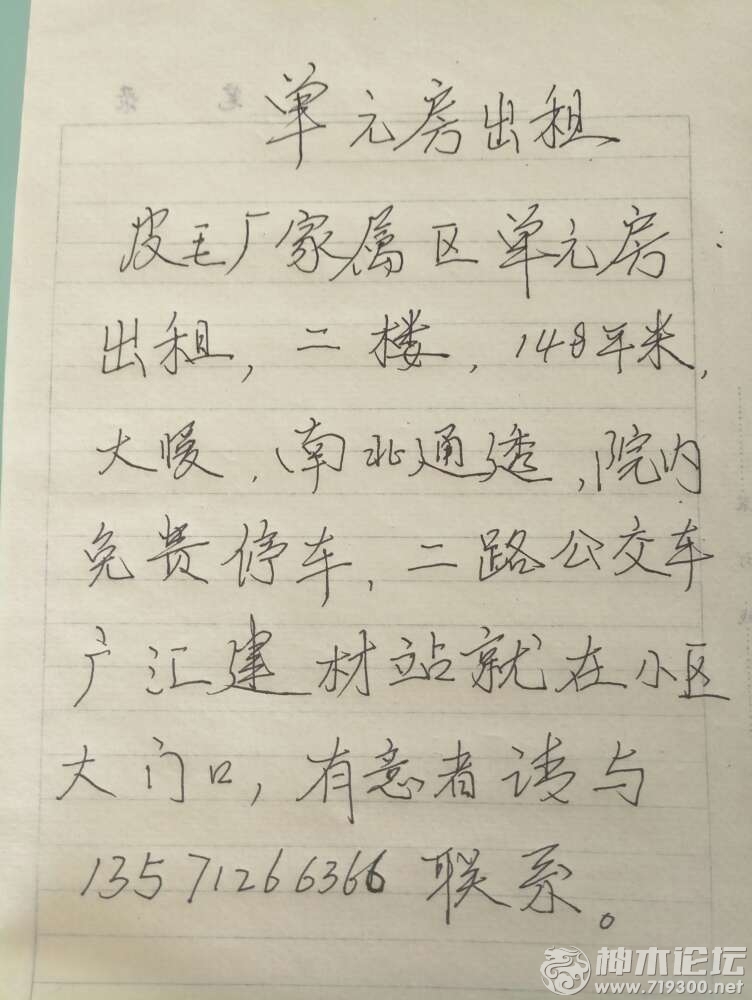 单元房出租
皮毛厂家属区单元房
出租,二楼,148平米,
大暖,南北通透,院内
免费停车,二路公交车
广汇建材站就在小区
大门口,有意者请与
13571266366联系。
神木论坛
www.719300.net